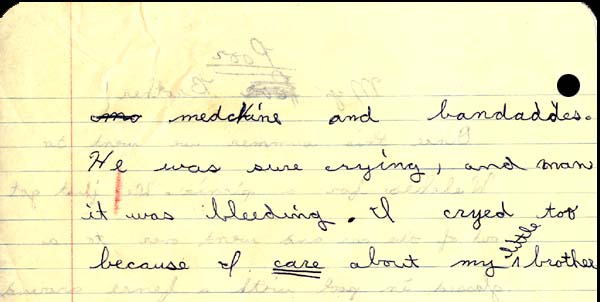 medckine and bandaddes.
He was sure crying, and man
it was bleeding. I cryed too
because I care about my little brother